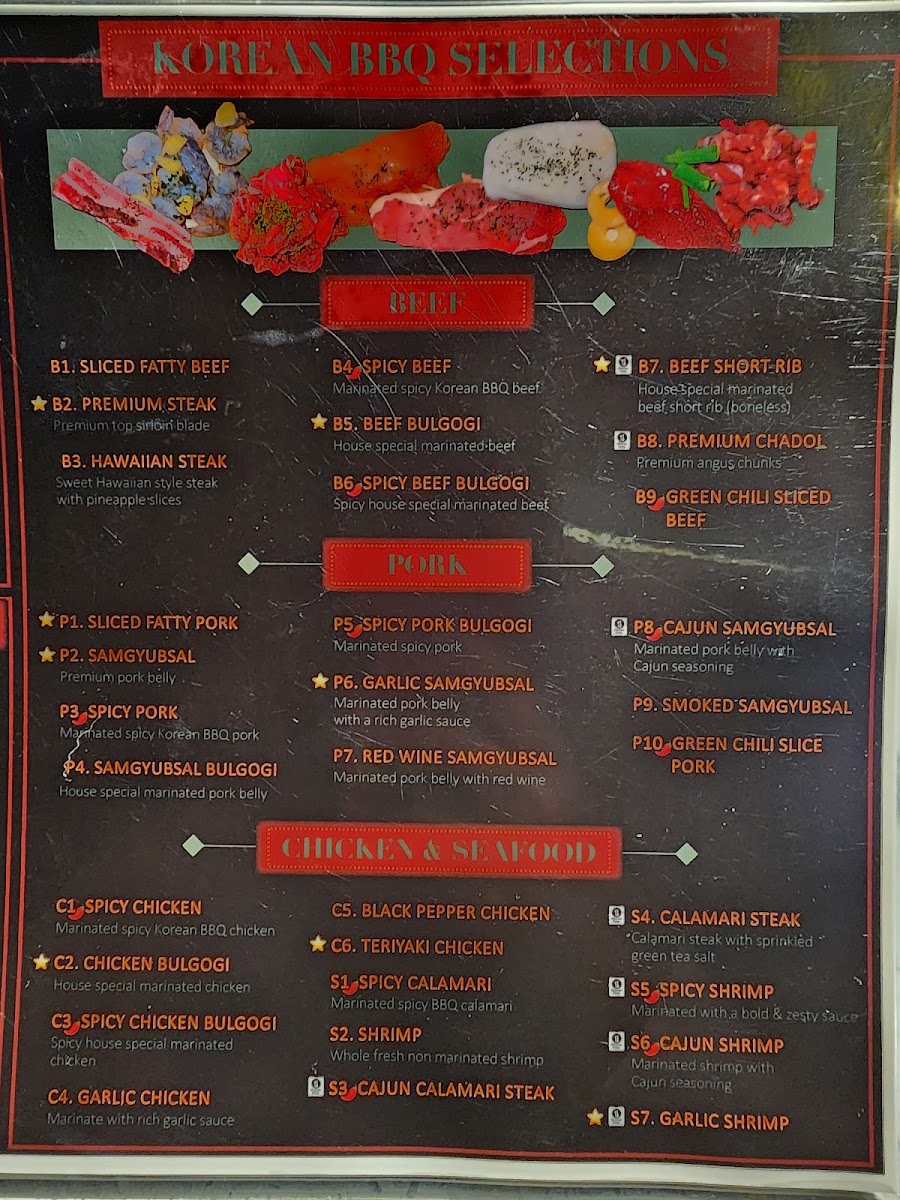 KOREAN BBQ SELECTIONS
BEEF
B1. SLICED FATTY BEEF
B2. PREMIUM STEAK
Premium top sirloin blade
B3. HAWAIIAN STEAK
Sweet Hawaiian style steak
with pineapple slices
B4. SPICY BEEF
Marinated spicy Korean BBQ beef
B5. BEEF BULGOGI
House special marinated beef
B6. SPICY BEEF BULGOGI
Spicy house special marinated beef
B7. BEEF SHORT RIB
House special marinated
beef short rib (boneless)
B8. PREMIUM CHADOL
Premium angus chunks
B9. GREEN CHILI SLICED
BEEF
PORK
P1. SLICED FATTY PORK
P2. SAMGYUBSAL
Premium pork belly
P3. SPICY PORK
Marinated spicy Korean BBQ pork
P4. SAMGYUBSAL BULGOGI
House special marinated pork belly
P5. SPICY PORK BULGOGI
Marinated spicy pork
P6. GARLIC SAMGYUBSAL
Marinated pork belly
with a rich garlic sauce
P7. RED WINE SAMGYUBSAL
Marinated pork belly with red wine
P8. CAJUN SAMGYUBSAL
Marinated pork belly with
Cajun seasoning
P9. SMOKED SAMGYUBSAL
P10. GREEN CHILI SLICE
PORK
CHICKEN & SEAFOOD
C1. SPICY CHICKEN
Marinated spicy Korean BBQ chicken
C2. CHICKEN BULGOGI
House special marinated chicken
C3. SPICY CHICKEN BULGOGI
Spicy house special marinated
chicken
C4. GARLIC CHICKEN
Marinate with rich garlic sauce
C5. BLACK PEPPER CHICKEN
C6. TERIYAKI CHICKEN
S1. SPICY CALAMARI
Marinated spicy BBQ calamari
S2. SHRIMP
Whole fresh non marinated shrimp
S3. CAJUN CALAMARI STEAK
S4. CALAMARI STEAK
Calamari steak with sprinkled
green tea salt
S5. SPICY SHRIMP
Marinated with a bold & zesty sauce
S6. CAJUN SHRIMP
Marinated shrimp with
Cajun seasoning
S7. GARLIC SHRIMP